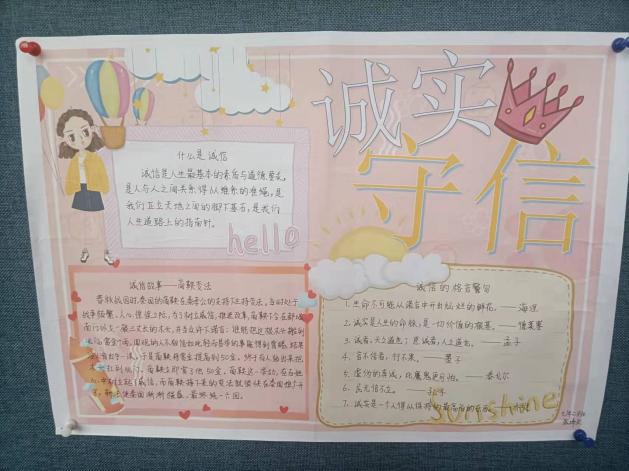 诚实
守信
什么是诚信
诚信是人生最基本的素质与道德要求,
是人与人之间关系得以维系的准绳,是
我们立立天地之间的脚下基石,是我们
人生道路上的指南针。
hello
诚信故事——商鞅变法
春秋战国时,秦国的商鞅在秦孝公的支持下主持变法,当时处于
战争频繁、人心惶惶之际,为了树立威信,推进改革,商鞅下令在都城
南门外立一根三丈长的木头,并当众许下诺言:谁能把这根木头搬到
结果
于是商鞅将赏金提高到50金,终于有人站出来把
木头扛到 商鞅立即赏了他50金,商鞅这一举动,在百姓
心中树立起了威信,而商鞅接下来的变法就很快在秦国推广开
了,新法使秦国渐渐强盛,最终统一六国。
诚信的格言警句
1.生命不可能从谎言中开出灿烂的鲜花。——海涅
2.诚实是人生的命脉,是一切价值的根基。——德莱塞
3.诚者,天之道也;思诚者,人之道也。——孟子
4.言不信者,行不果。——墨子
5.虚伪的真诚,比魔鬼更可怕。——泰戈尔
6.民无信不立。——孔子
7.诚实是一个人得以保持的最高尚的东西。
sunshine